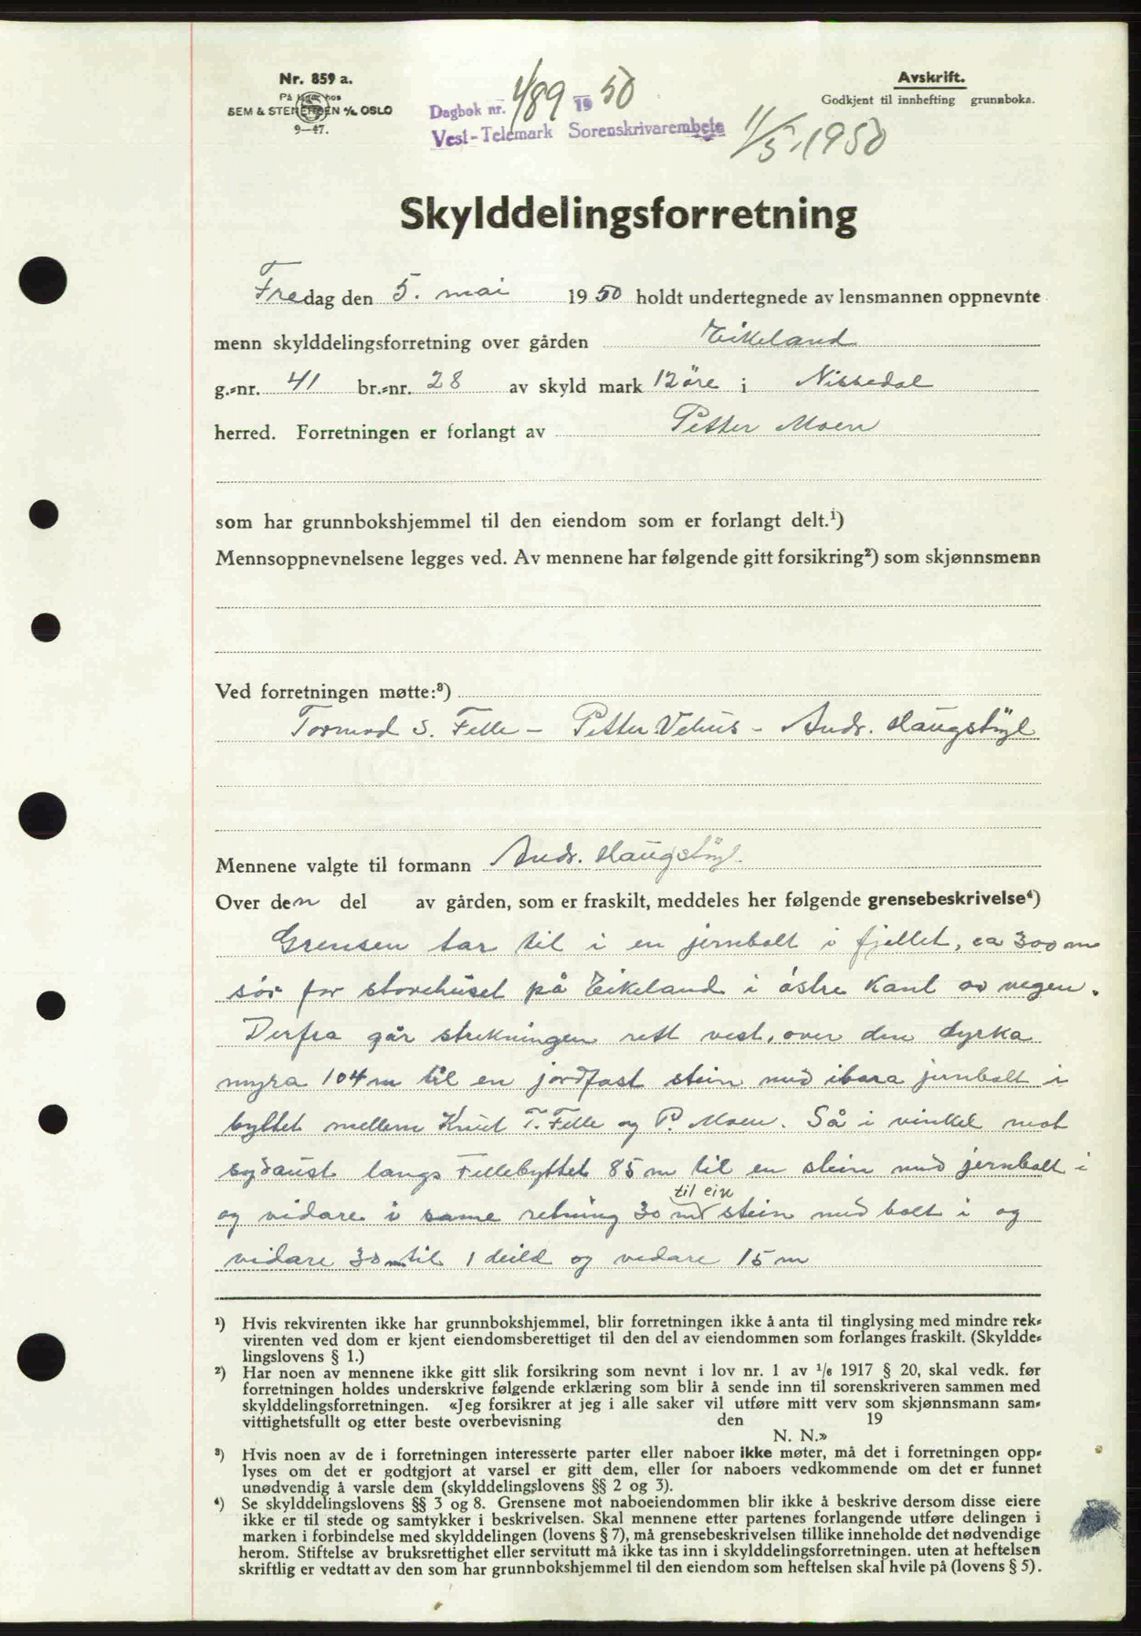 Nr. 859 a.
På lager hos
SEM & STENERSEN A/S, OSLO
9-47.
Dagbok nr. 489 1950
Vest-Telemark Sorenskrivarembete
11/5.1950
Avskrift.
Godkjent til innhefting grunnboka.
Skylddelingsforretning
Fredag den 5. mai 1950 holdt undertegnede av lensmannen oppnevnte
menn skylddelingsforretning over gården Eikeland
g.-nr. 41 br.-nr. 28 av skyld mark 12 øre i Nissedal
herred. Forretningen er forlangt av Petter Moen
som har grunnbokshjemmel til den eiendom som er forlangt delt.¹)
Mennsoppnevnelsene legges ved. Av mennene har følgende gitt forsikring²) som skjønnsmenn
Ved forretningen møtte:³)
Tormod S. Felle - Petter Vehus - Andr. Haugstøyl
Mennene valgte til formann Andr. Haugstøyl.
Over den del av gården, som er fraskilt, meddeles her følgende grensebeskrivelse⁴)
Grensen tar til i en jernbolt i fjellet, ca 300 m
sør for stovehuset på Eikeland i østre kant av vegen.
Derfra går strekningen rett vest, over den dyrka
myra 104 m til en jordfast stein med ibora jernbolt i
byttet mellem Knut T. Felle og P. Moen. Så i vinkel mot
sydaust langs Fellebyttet 85 m til en stein med jernbolt i
og vidare i same retning 30 m til ein stein med bolt i og
vidare 30 m til 1 deild og vedare 15 m
¹) Hvis rekvirenten ikke har grunnbokshjemmel, blir forretningen ikke å anta til tinglysing med mindre rek-
virenten ved dom er kjent eiendomsberettiget til den del av eiendommen som forlanges fraskilt. (Skyldde-
lingslovens § 1.)
²) Har noen av mennene ikke gitt slik forsikring som nevnt i lov nr. 1 av 1/6 1917 § 20, skal vedk. før
forretningen holdes underskrive følgende erklæring som blir å sende inn til sorenskriveren sammen med
skylddelingsforretningen. «Jeg forsikrer at jeg i alle saker vil utføre mitt verv som skjønnsmann sam-
vittighetsfullt og etter beste overbevisning den 19
N. N.»
³) Hvis noen av de i forretningen interesserte parter eller naboer ikke møter, må det i forretningen opp-
lyses om det er godtgjort at varsel er gitt dem, eller for naboers vedkommende om det er funnet
unødvendig å varsle dem (skylddelingslovens §§ 2 og 3).
⁴) Se skylddelingslovens §§ 3 og 8. Grensene mot naboeiendommen blir ikke å beskrive dersom disse eiere
ikke er til stede og samtykker i beskrivelsen. Skal mennene etter partenes forlangende utføre delingen i
marken i forbindelse med skylddelingen (lovens § 7), må grensebeskrivelsen tillike inneholde det nødvendige
herom. Stiftelse av bruksrettighet eller servitutt må ikke tas inn i skylddelingsforretningen. uten at heftelsen
skriftlig er vedtatt av den som har grunnbokshjemmel til den eiendom som heftelsen skal hvile på (lovens § 5).